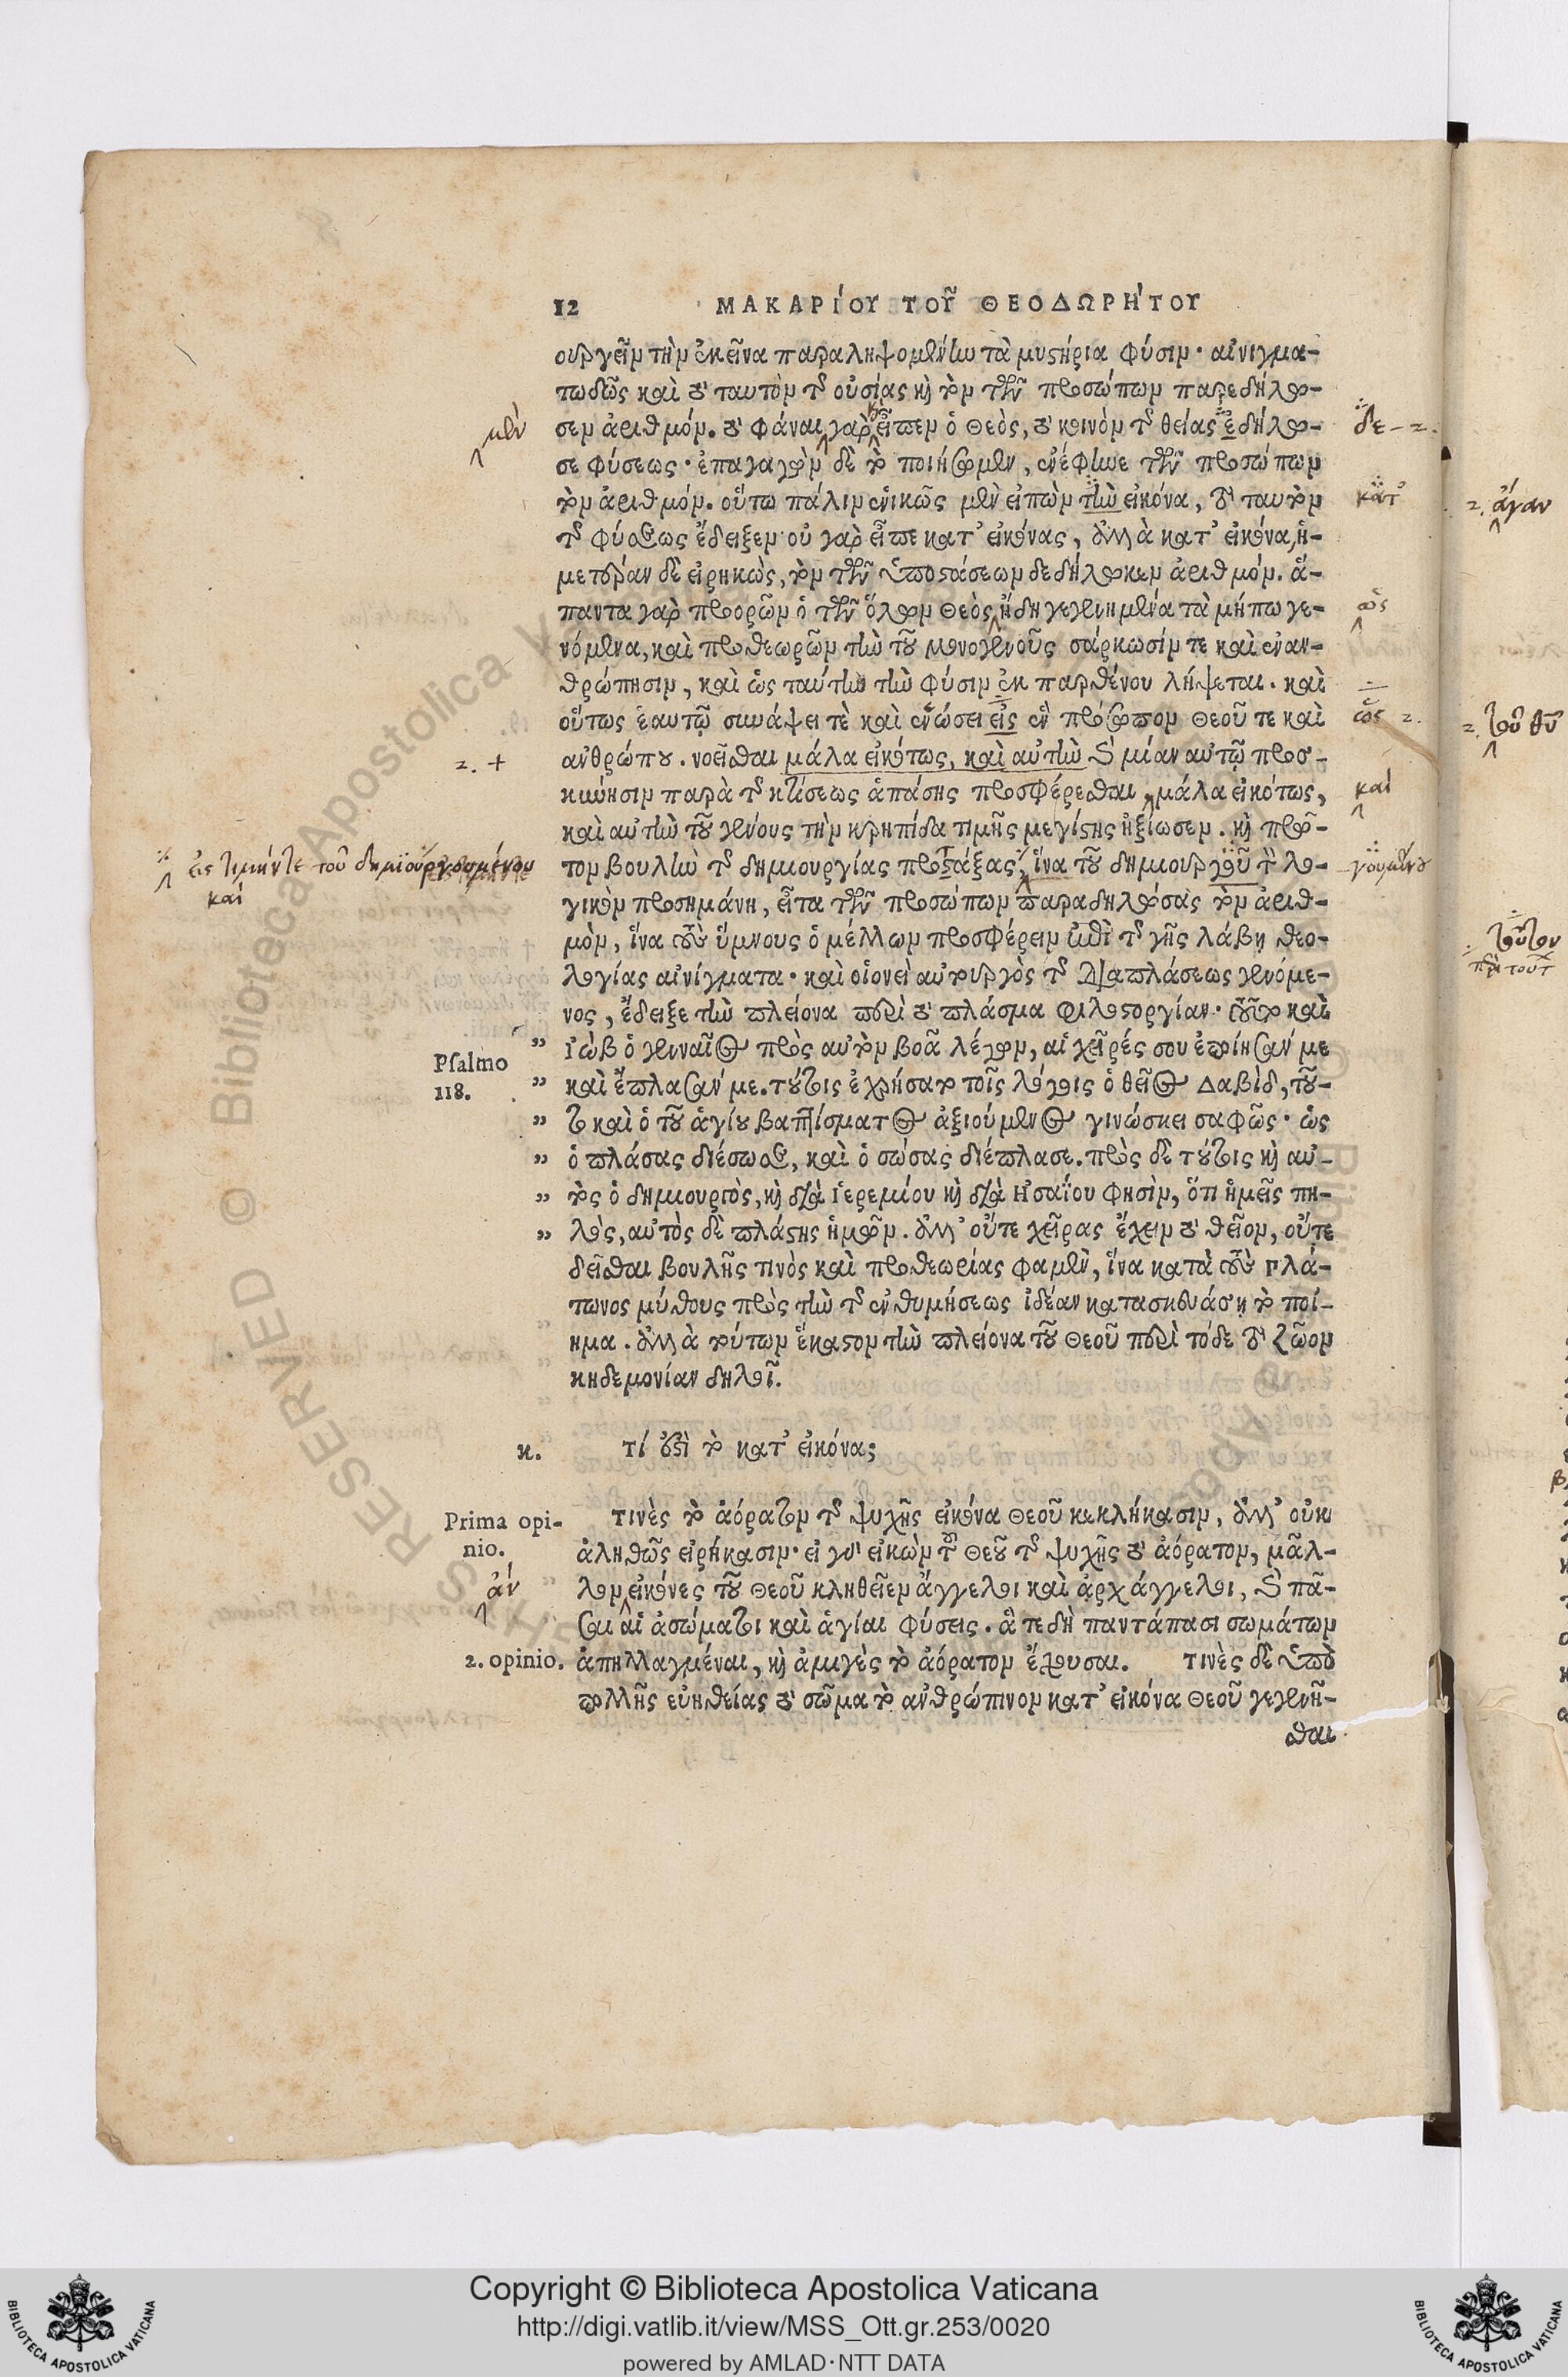 12 ΜΑΚΑΡΙ΄ΟΥ ΤΟΥ͂ ΘΕΟΔΩΡΗ΄ΤΟΥ
ουργεῖν τὴν ἐκεῖνα παραληψομένην τὰ μυστήρια φύσιν· αἰνιγμα-
τωδῶς καὶ τὸ ταυτὸν τῆς οὐσίας καὶ τὸν τῶν προσώπων παρεδήλω-
σεν ἀριθμόν. τὸ φάναι γὰρ εἶπεν ὁ Θεὸς, τὸ κοινὸν τῆς θείας ἐδήλω-
σε φύσεως· ἐπαγαγὼν δὲ τὸ ποιήσωμεν, ἐνέφηνε τῶν προσώπων
τὸν ἀριθμόν. οὕτω πάλιν ἑνικῶς μὲν εἰπὼν τὴν εἰκόνα, τὸ ταυτὸν
τῆς φύσεως ἔδειξεν· οὐ γὰρ εἶπε κατ' εἰκόνας, ἀλλὰ κατ' εἰκόνα, ἡ-
μετέραν δὲ εἰρηκὼς, τὸν τῶν ὑποστάσεων δεδήλωκεν ἀριθμόν. ἅ-
παντα γὰρ προορῶν ὁ τῶν ὅλων Θεὸς, ἤδη γεγενημένα τὰ μήπω γε-
νόμενα, καὶ προθεωρῶν τὴν τοῦ μονογενοῦς σάρκωσίν τε καὶ ἐναν-
θρώπησιν, καὶ ὡς ταύτην τὴν φύσιν ἐκ παρθένου λήψεται. καὶ
οὕτως ἑαυτῷ συνάψει τὲ καὶ ἑνώσει εἰς ἓν πρόσωπον Θεοῦ τε καὶ
ἀνθρώπου. νοεῖσθαι μάλα εἰκότως, καὶ αὐτὴν καὶ μίαν αὐτῷ προσ-
κύνησιν παρὰ τῆς κτίσεως ἁπάσης προσφέρεσθαι, μάλα εἰκότως,
καὶ αὐτὴν τοῦ γένους τὴν κρηπίδα τιμῆς μεγίστης ἠξίωσεν. καὶ πρῶ-
τον βουλὴν τῆς δημιουργίας προστάξας, ἵνα τοῦ δημιουργοῦ τὸ λο-
γικὸν προσημάνῃ, εἶτα τῶν προσώπων παραδηλώσας τὸν ἀριθ-
μὸν, ἵνα τοὺς ὕμνους ὁ μέλλων προσφέρειν ἐπὶ τῆς γῆς λάβῃ θεο-
λογίας αἰνίγματα· καὶ οἱονεὶ αὐτουργὸς τῆς διαπλάσεως γενόμε-
νος, ἔδειξε τὴν πλείονα περὶ τὸ πλάσμα φιλοστοργίαν. τοῦτο καὶ
„ Ἰὼβ ὁ γενναῖος πρὸς αὐτὸν βοᾷ λέγων, αἱ χεῖρές σου ἐποίησάν με
Psalmo
118.
„ καὶ ἔπλασάν με. τούτοις ἐχρήσατο τοῖς λόγοις ὁ θεῖος Δαβίδ, τοῦ-
„ το καὶ ὁ τοῦ ἁγίου βαπτίσματος ἀξιούμενος γινώσκει σαφῶς· ὡς
„ ὁ πλάσας διέσωσε, καὶ ὁ σώσας διέπλασε. πρὸς δὲ τούτοις καὶ αὐ-
„ τὸς ὁ δημιουργὸς, καὶ διὰ Ἱερεμίου καὶ διὰ Ἡσαΐου φησὶν, ὅτι ἡμεῖς πη-
„ λὸς, αὐτὸς δὲ πλάστης ἡμῶν. ἀλλ' οὔτε χεῖρας ἔχειν τὸ θεῖον, οὔτε
δεῖσθαι βουλῆς τινὸς καὶ προθεωρίας φαμὲν, ἵνα κατὰ τοὺς Πλά-
τωνος μύθους πρὸς τὴν τῆς ἐνθυμήσεως ἰδέαν κατασκευάσῃ τὸ ποί-
ημα. ἀλλὰ τούτων ἕκαστον τὴν πλείονα τοῦ Θεοῦ περὶ τόδε τὸ ζῶον
κηδεμονίαν δηλοῖ.
κ. τί ἐστὶ τὸ κατ' εἰκόνας;
Prima opi-
nio.
τινὲς τὸ ἀόρατον τῆς ψυχῆς εἰκόνα Θεοῦ κεκλήκασιν, ἀλλ' οὐκ
ἀληθῶς εἰρήκασιν· εἰ γὰρ εἰκὼν τοῦ Θεοῦ τῆς ψυχῆς τὸ ἀόρατον, μᾶλ-
λον εἰκόνες τοῦ Θεοῦ κληθεῖεν ἄγγελοι καὶ ἀρχάγγελοι, καὶ πᾶ-
σαι αἱ ἀσώματοι καὶ ἁγίαι φύσεις. ἅ τε δὴ παντάπασι σωμάτων
2. opinio. ἀπηλλαγμέναι, καὶ ἀμιγὲς τὸ ἀόρατον ἔχουσαι. τινὲς δὲ ὑπὸ
πολλῆς εὐηθείας τὸ σῶμα τὸ ἀνθρώπινον κατ' εἰκόνα Θεοῦ γεγενῆ-
σθαι
μὲν
δε - 2.
κατ'
ὡς
ὡς 2.
2. +
καὶ
εἰς τιμήν τε τοῦ δημιουργουμένου
καὶ
γουμένου
ἂν
2. ἄγαν
2. τοῦ θῦ
Copyright © Biblioteca Apostolica Vaticana
http://digi.vatlib.it/view/MSS_Ott.gr.253/0020
powered by AMLAD·NTT DATA
BIBLIOTECA APOSTOLICA VATICANA
BIBLIOTECA APOSTOLICA VATICANA